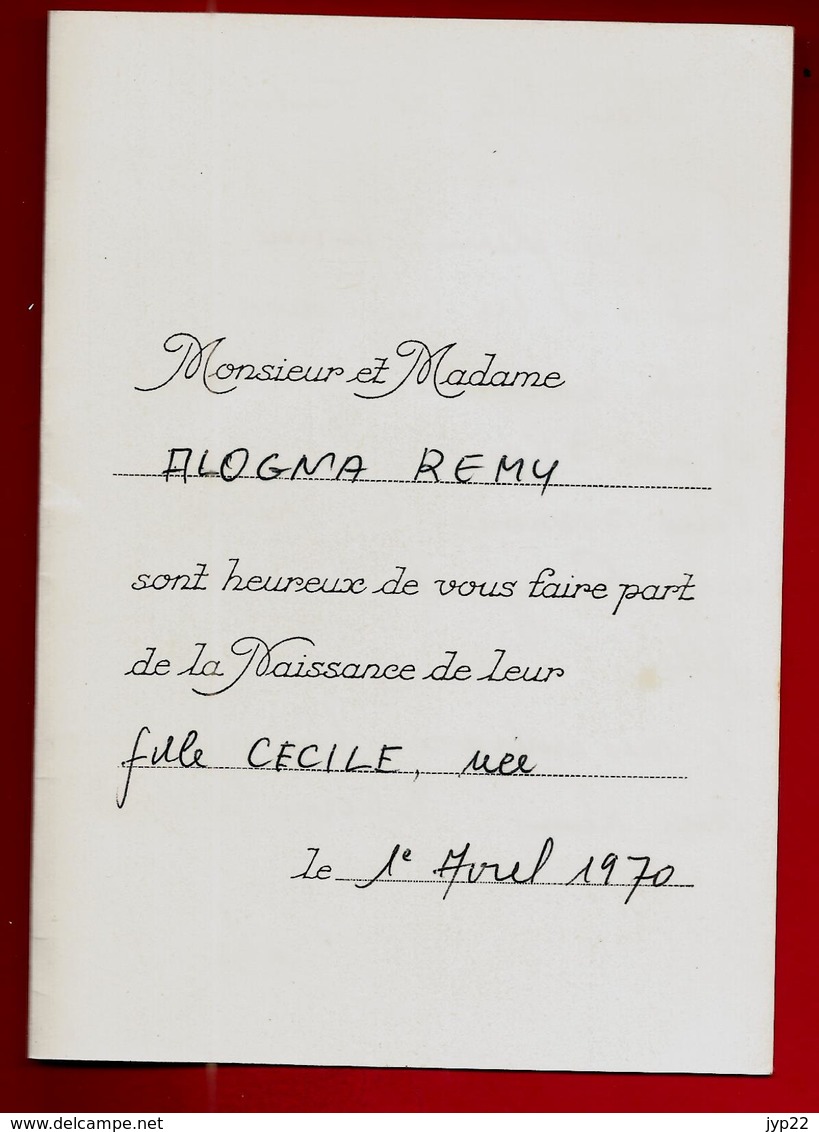 Monsieur et Madame
ALOGNA REMY
sont heureux de vous faire part
de la Naissance de leur
fille CECILE, née
le 1e Avril 1970
www.delcampe.net
jyp22